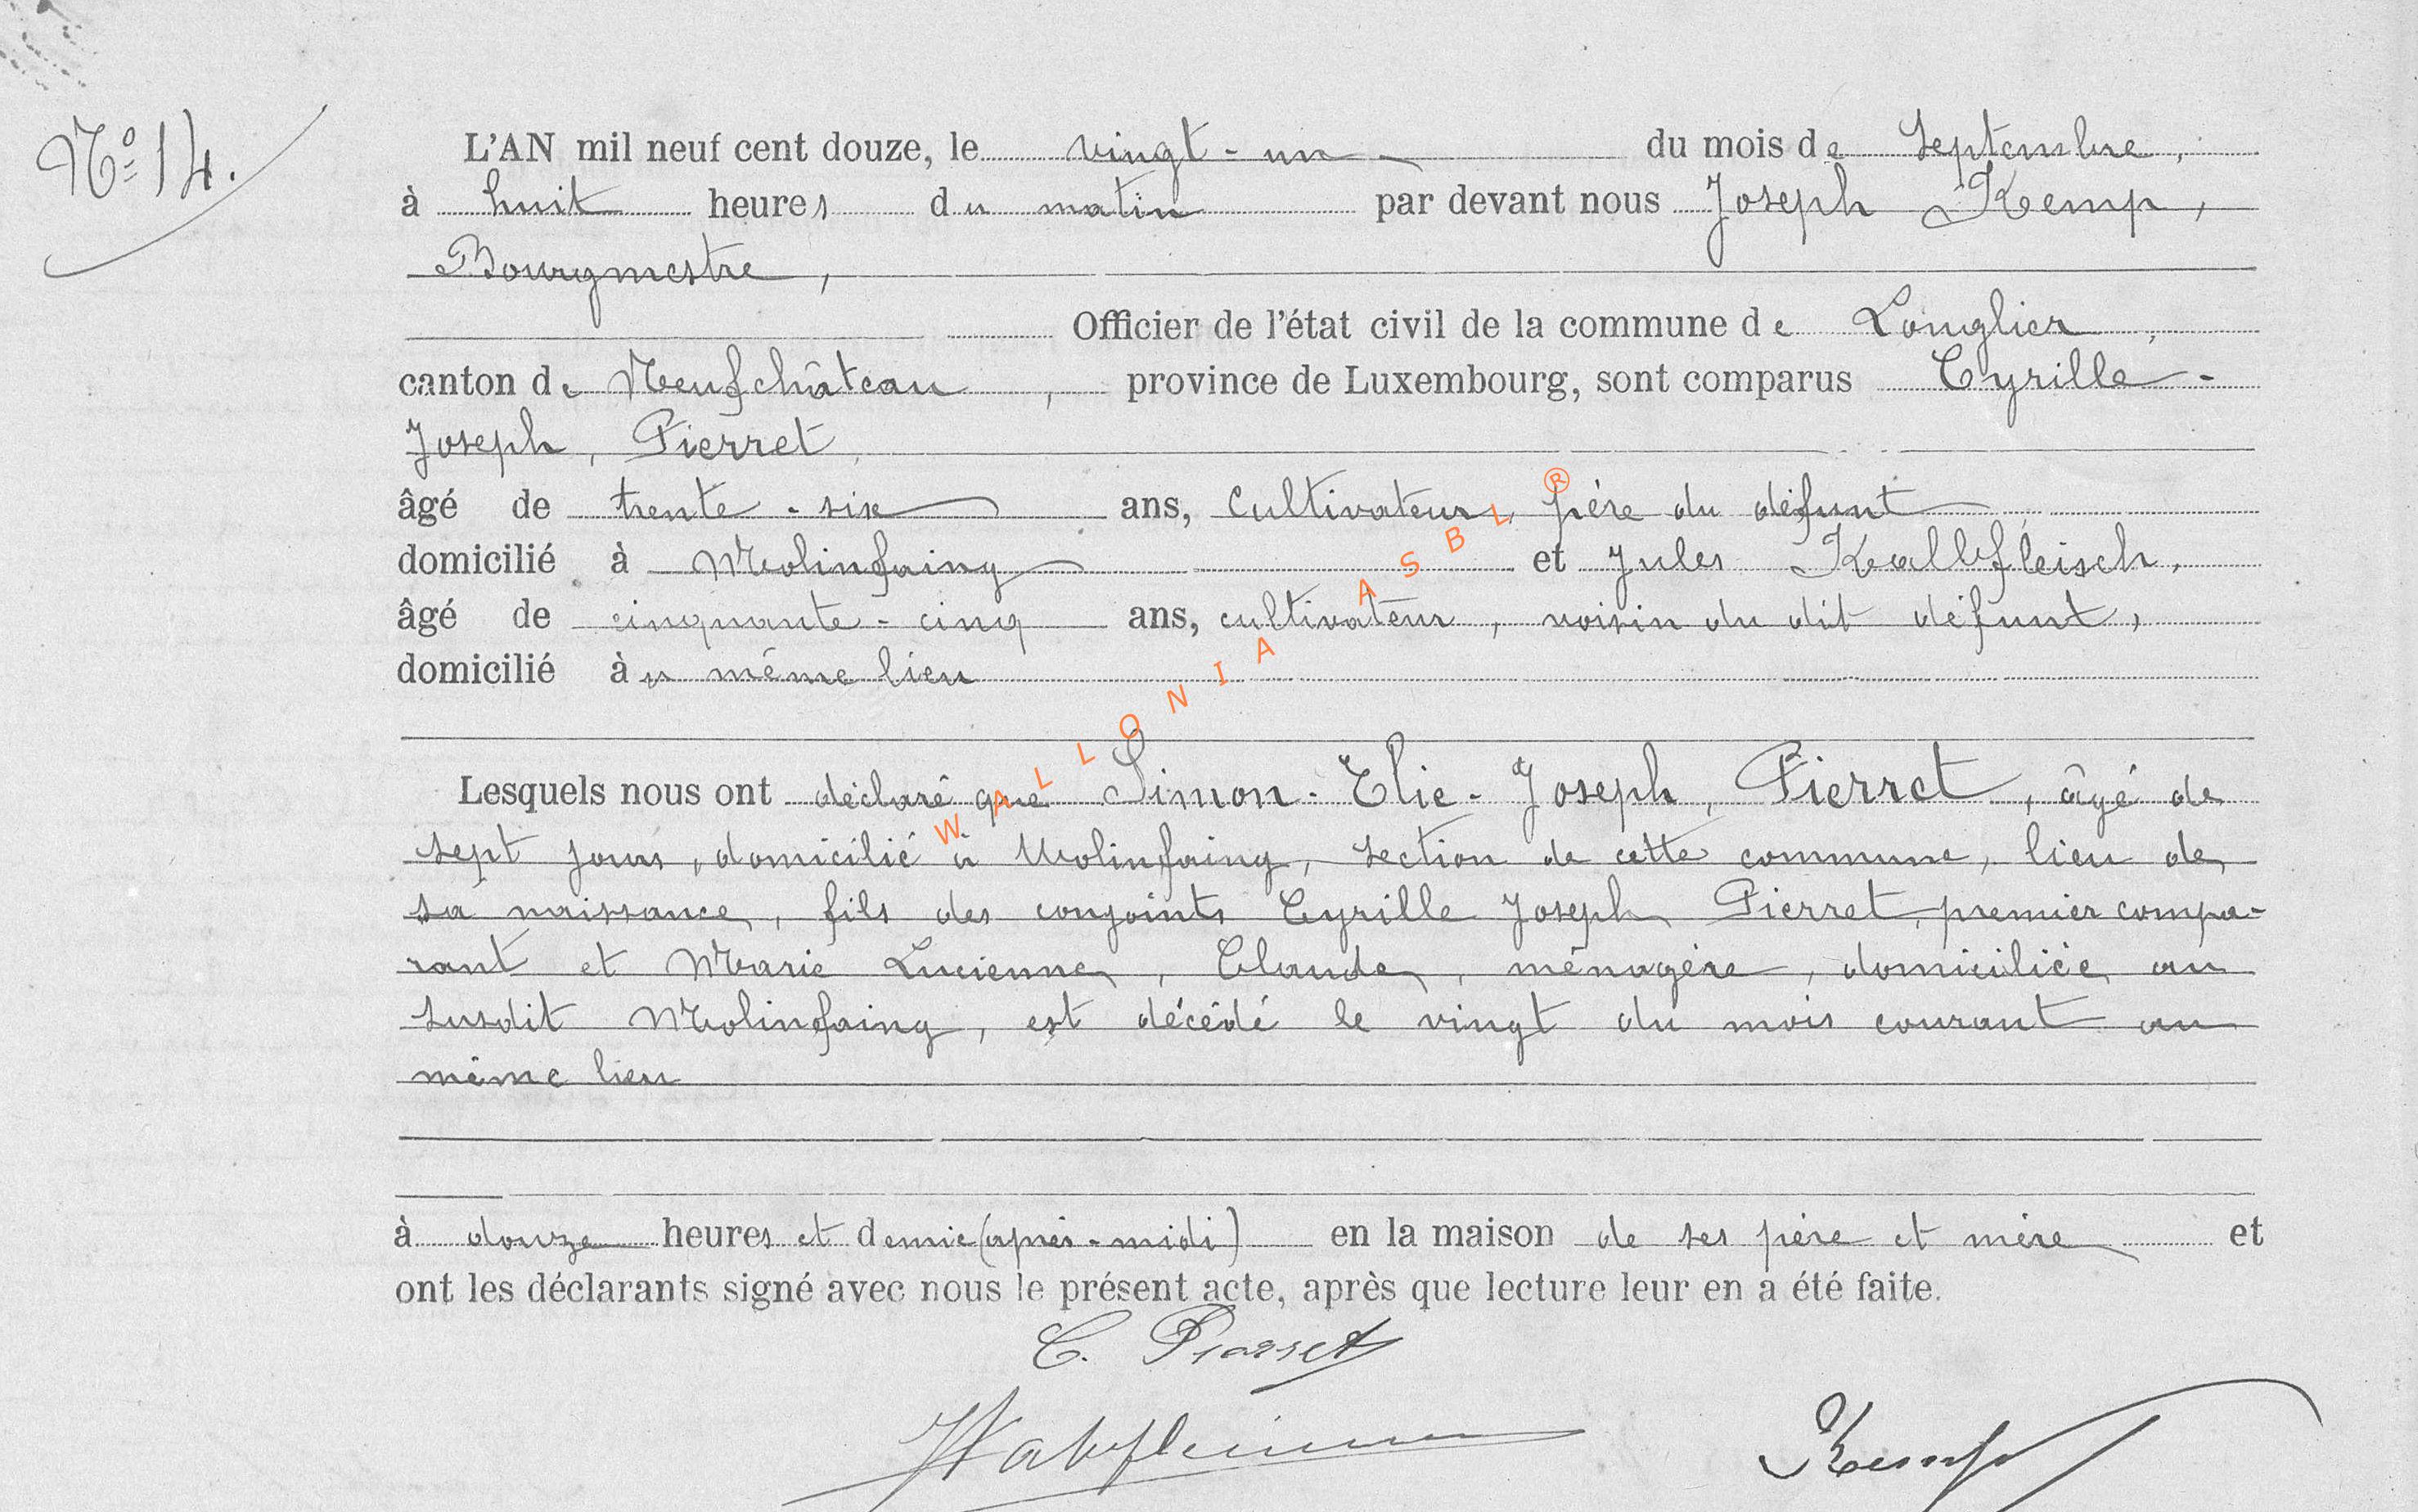 Nº 14.
L'AN mil neuf cent douze, le vingt-un du mois de Septembre,
à huit heures du matin par devant nous Joseph Kemp,
Bourgmestre,
Officier de l'état civil de la commune de Longlier,
canton de Neufchâteau, province de Luxembourg, sont comparus Cyrille-
Joseph, Pierret,
âgé de trente-six ans, cultivateur, père du défunt
domicilié à Molinfaing et Jules Kalbfleisch,
âgé de cinquante-cinq ans, cultivateur, voisin du dit défunt,
domicilié au même lieu
Lesquels nous ont déclaré que Simon-Elie-Joseph, Pierret, âgé de
sept jours, domicilié à Molinfaing, section de cette commune, lieu de
sa naissance, fils des conjoints Cyrille Joseph Pierret, premier compa-
rant et Marie Lucienne, Claude, ménagère, domiciliée au
susdit Molinfaing, est décédé le vingt du mois courant au
même lieu
à douze heures et demie (après-midi) en la maison de ses père et mère et
ont les déclarants signé avec nous le présent acte, après que lecture leur en a été faite.
C. Pierret
Kalbfleisch
Kemp
WALLONIA ASBL ®